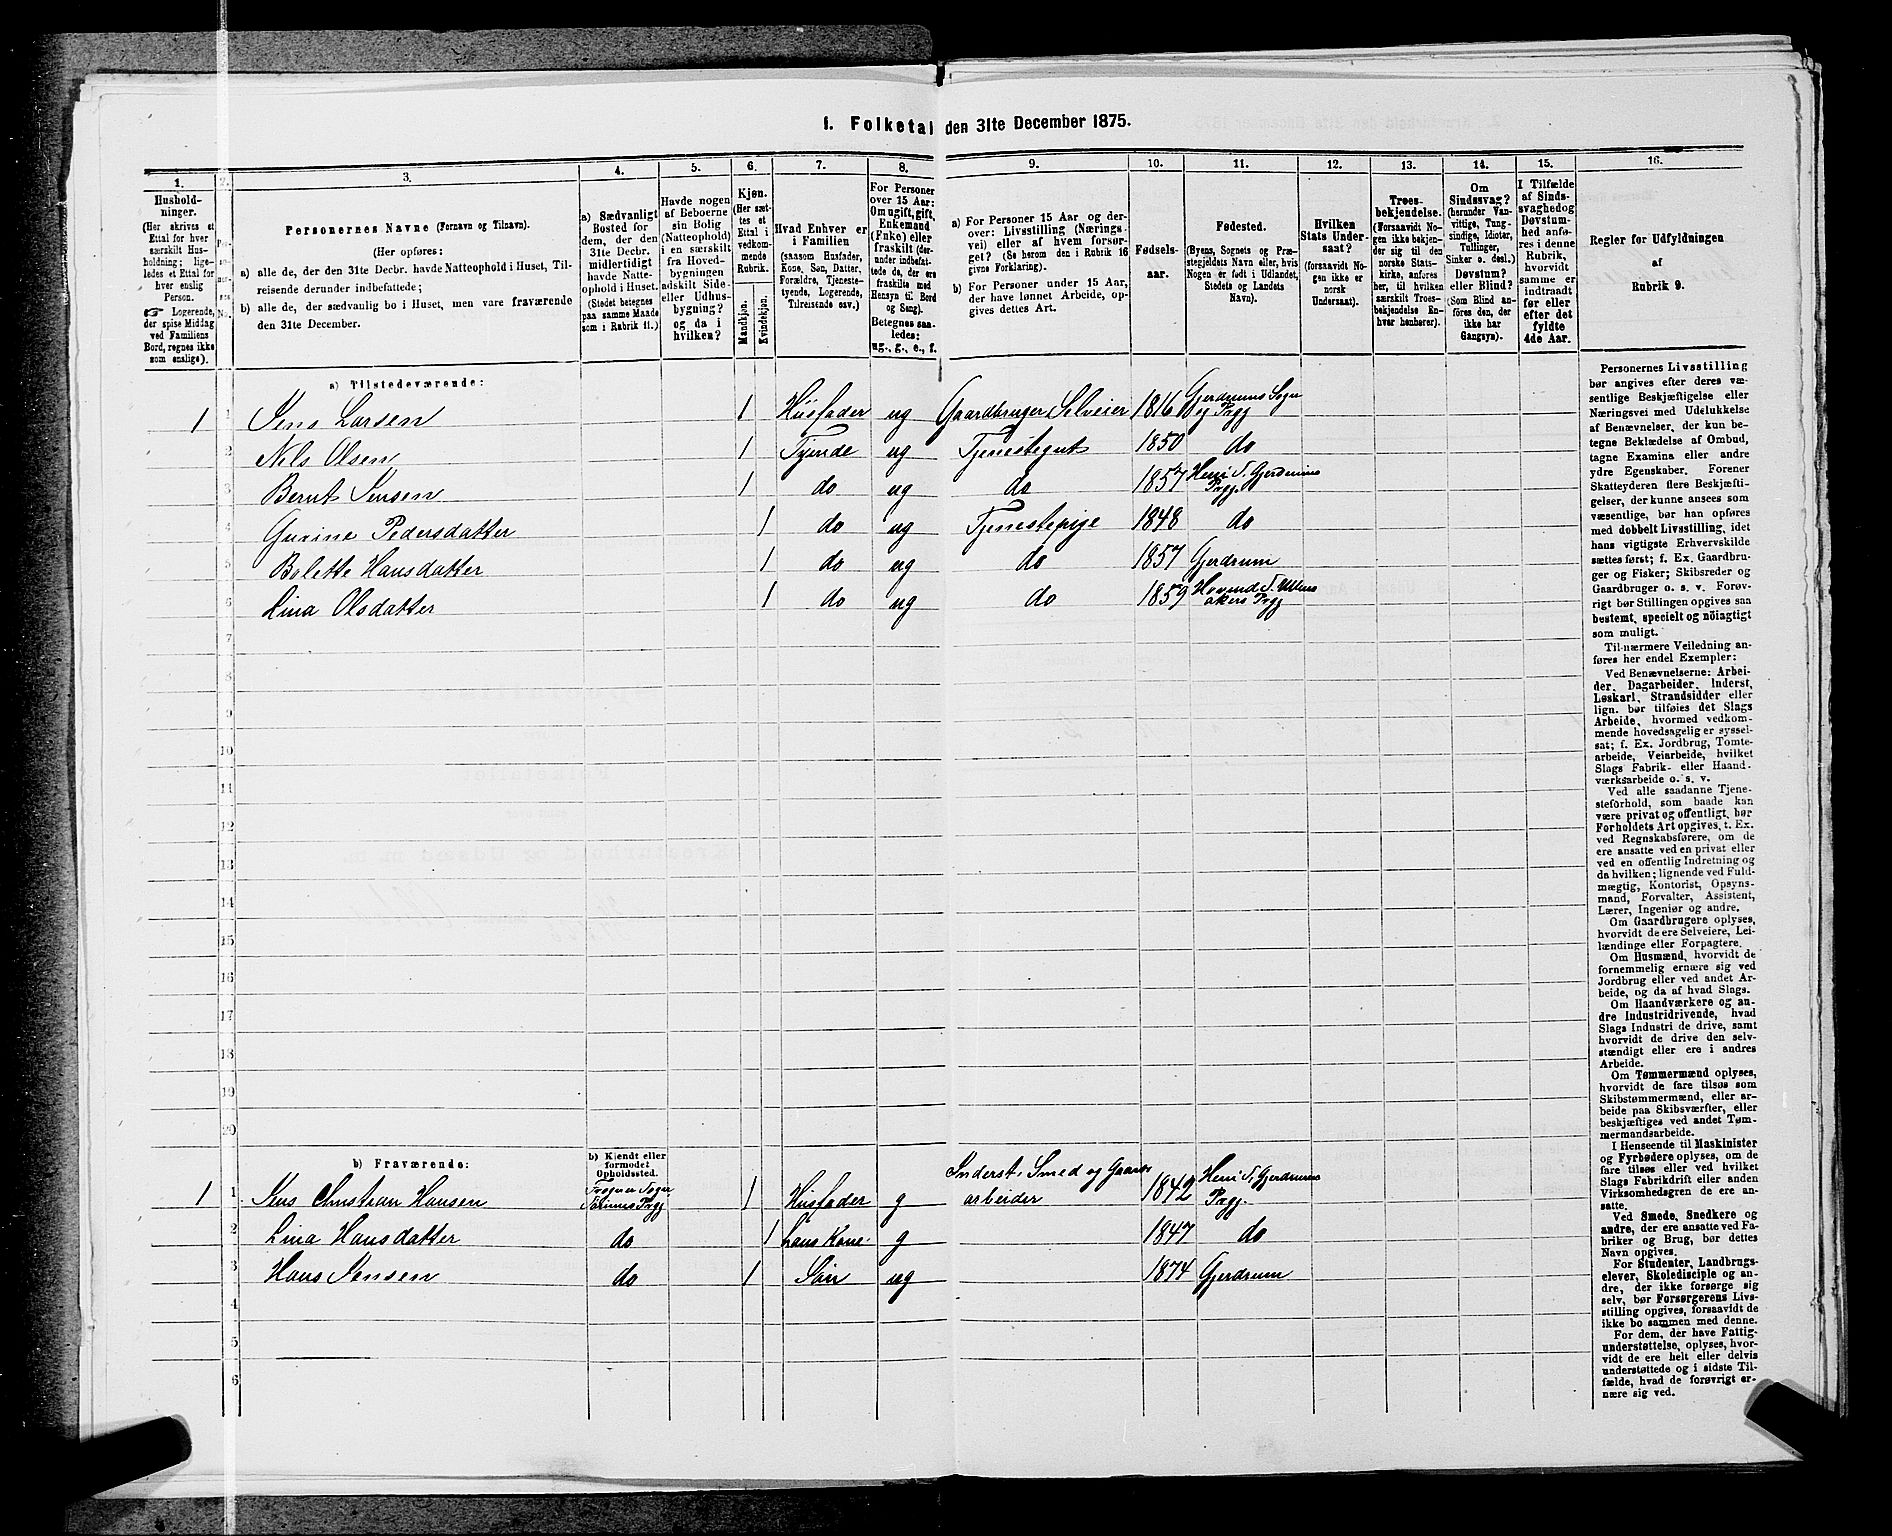 1. Folketal den 31te December 1875.
1. 2. 3. 4. 5. 6. 7. 8. 9. 10. 11. 12. 13. 14. 15. 16.
Husholdninger.
(Her skrives et
Ettal for hver
særskilt Husholdning;
ligeledes et Ettal for
hver enslig
Person.
☞ Logerende,
der spise Middag
ved Familiens
Bord, regnes ikke
som enslige).
Personernes Navne (Fornavn og Tilnavn).
(Her opføres:
a) alle de, der den 31te Decbr. havde Natteophold i Huset, Tilreisende derunder indbefattede;
b) alle de, der sædvanlig bo i Huset, men vare fraværende
den 31te December.
a) Sædvanligt
Bosted for
dem, der den
31te Decbr.
midlertidigt
havde Natteophold i Huset.
(Stedet betegnes
paa samme Maade
som i Rubrik 11.)
Havde nogen
af Beboerne
sin Bolig
(Natteophold)
i en særskilt
fra Hovedbygningen
adskilt Side-
eller Udhusbygning?
og da i
hvilken?
Kjøn.
(Her sættes et
Ettal i
vedkommende
Rubrik.
Mandkjøn.
Kvindekjøn.
Hvad Enhver er
i Familien
(saasom Husfader,
Kone, Søn, Datter,
Forældre, Tjenestetyende, Logerende,
Tilreisende osv.)
For Personer
over 15 Aar:
Om ugift, gift,
Enkemand
(Enke) eller
fraskilt (derunder indbefattede de, der ere
fraskilte med
Hensyn til Bord
og Seng).
Betegnes saaledes:
ug., g., e., f.
a) For Personer 15 Aar og derover: Livsstilling (Næringsvei) eller af hvem forsørget? (Se herom den i Rubrik 16
givne Forklaring).
b) For Personer under 15 Aar,
der have lønnet Arbeide, opgives dettes Art.
Fødselsaar.
Fødested.
(Byens, Sognets og Præstegjeldets Navn eller, hvis
Nogen er født i Udlandet,
Stedets og Landets
Navn).
Hvilken
Stats Undersaat?
(forsaavidt Nogen ikke er
norsk
Undersaat).
Troesbekjendelse.
(Forsaavidt Nogen ikke bekjender sig til den
norske Statskirke, anføres
her, til hvilken
særskilt Troesbekjendelse Enhver henhører).
Om
Sindssvag?
(herunder Vanvittige, Tungsindige, Idioter,
Tullinger,
Sinker o. desl.)
Døvstum?
eller Blind?
(Som Blind anføres den, der
ikke har
Gangsyn).
I Tilfælde
af Sindssvaghed og
Døvstumhed anføres i denne
Rubrik,
hvorvidt
samme er
indtraadt
før eller
efter det
fyldte
4de Aar.
Regler for Udfyldningen
af
Rubrik 9.
a) Tilstedeværende:
1 1 Jens Larsen 1 Husfader ug Gaardbruger Selveier 1816 Gjerdrums Sogn og Prgj
2 Nils Olsen 1 Tjende ug Tjenestegut 1850 do
3 Bernt Jensen 1 do ug do 1857 Heni S. Gjerdrums Prgj.
4 Gurine Pedersdatter 1 do ug Tjenestepige 1848 do
5 Bolette Hansdatter 1 do ug do 1857 Gjerdrum
6 Lina Olsdatter 1 do ug do 1859 Hovind S. Ullensakers Prgj
7
8
9
10
11
12
13
14
15
16
17
18
19
20
b) Fraværende:
b) Kjendt eller
formodet
Opholdssted.
1 1 Jens Christian Hansen Frogner Sogn Sørums Prgj 1 Husfader g Inderst: Smed og Gaards arbeider 1842 Heni S. Gjerdrums Prgj.
2 Lina Hansdatter do 1 hans Kone g 1847 do
3 Hans Jensen do 1 Søn ug 1874 Gjerdrum
4
5
6
Personernes Livsstilling
bør angives efter deres væsentlige Beskjæftigelse eller
Næringsvei med Udelukkelse
af Benævnelser, der kun betegne Beklædelse af Ombud,
tagne Examina eller andre
ydre Egenskaber. Forener
Skatteyderen flere Beskjæftigelser, der kunne ansees som
væsentlige, bør han opføres
med dobbelt Livsstilling, idet
hans vigtigste Erhvervskilde
sættes først; f. Ex. Gaardbruger og Fisker; Skibsreder og
Gaardbruger o. s. v. Forøvrigt bør Stillingen opgives saa
bestemt, specielt og nöiagtigt
som muligt.
Til nærmere Veiledning anføres her endel Exempler:
Ved Benævnelserne: Arbeider, Dagarbeider, Inderst,
Løskarl, Strandsidder eller
lign. bør tilføies det Slags
Arbeide, hvormed vedkommende hovedsagelig er sysselsat; f. Ex. Jordbrug, Tomtearbeide, Veiarbeide, hvilket
Slags Fabrik- eller Haandværksarbeide o. s. v.
Ved alle saadanne Tjenesteforhold, som baade kan
være privat og offentligt, bør
Forholdets Art opgives, t. Ex.
ved Regnskabsførere, om de
ere ansatte ved en privat eller
ved en offentlig Indretning og
da hvilken; lignende ved Fuldmægtig, Kontorist, Opsynsmand, Forvalter, Assistent,
Lærer, Ingeniør og andre.
Om Gaardbrugere oplyses,
hvorvidt de ere Selveiere, Leilændinge eller Forpagtere.
Om Husmænd, hvorvidt de
fornemmelig ernære sig ved
Jordbrug eller ved andet Arbeide, og da af hvad Slags.
Om Haandværkere og andre Industridrivende, hvad
Slags Industri de drive, samt
hvorvidt de drive den selvstændigt eller ere i andres
Arbeide.
Om Tømmermænd oplyses,
hvorvidt de fare tilsøs som
Skibstømmermænd, eller arbeide paa Skibsværfter, eller
beskjæftiges ved andet Tømmermandsarbeide.
I Henseende til Maskinister
og Fyrbødere oplyses, om de
fare tilsøs eller ved hvilket
Slags Fabrikdrift eller anden
Virksomhedsgren de ere ansatte.
Ved Smede, Snedkere og
andre, der ere ansatte ved Fabriker og Brug, bør dettes
Navn opgives.
For Studenter, Landbrugselever, Skoledisciple og andre, der ikke forsørge sig
selv, bør Forsørgerens Livsstilling opgives, forsaavidt de
ikke bo sammen med denne.
For dem, der have Fattigunderstøttelse, oplyses, hvorvidt de ere helt eller delvis
understøttede og i sidste Tilfælde, hvad de forøvrigt ernære sig ved.